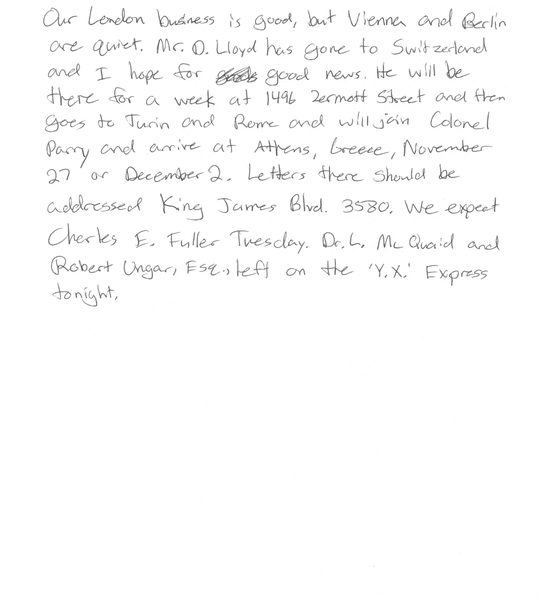 Our London business is good, but Vienna and Berlin
are quiet. Mr. D. Lloyd has gone to Switzerland
and I hope for good news. He will be
there for a week at 1496 Zermott Street and then
goes to Turin and Rome and will join Colonel
Parry and arrive at Athens, Greece, November
27 or December 2. Letters there should be
addressed King James Blvd. 3580. We expect
Charles E. Fuller Tuesday. Dr. L. Mc Quaid and
Robert Ungar, Esq., left on the 'Y.X.' Express
tonight.